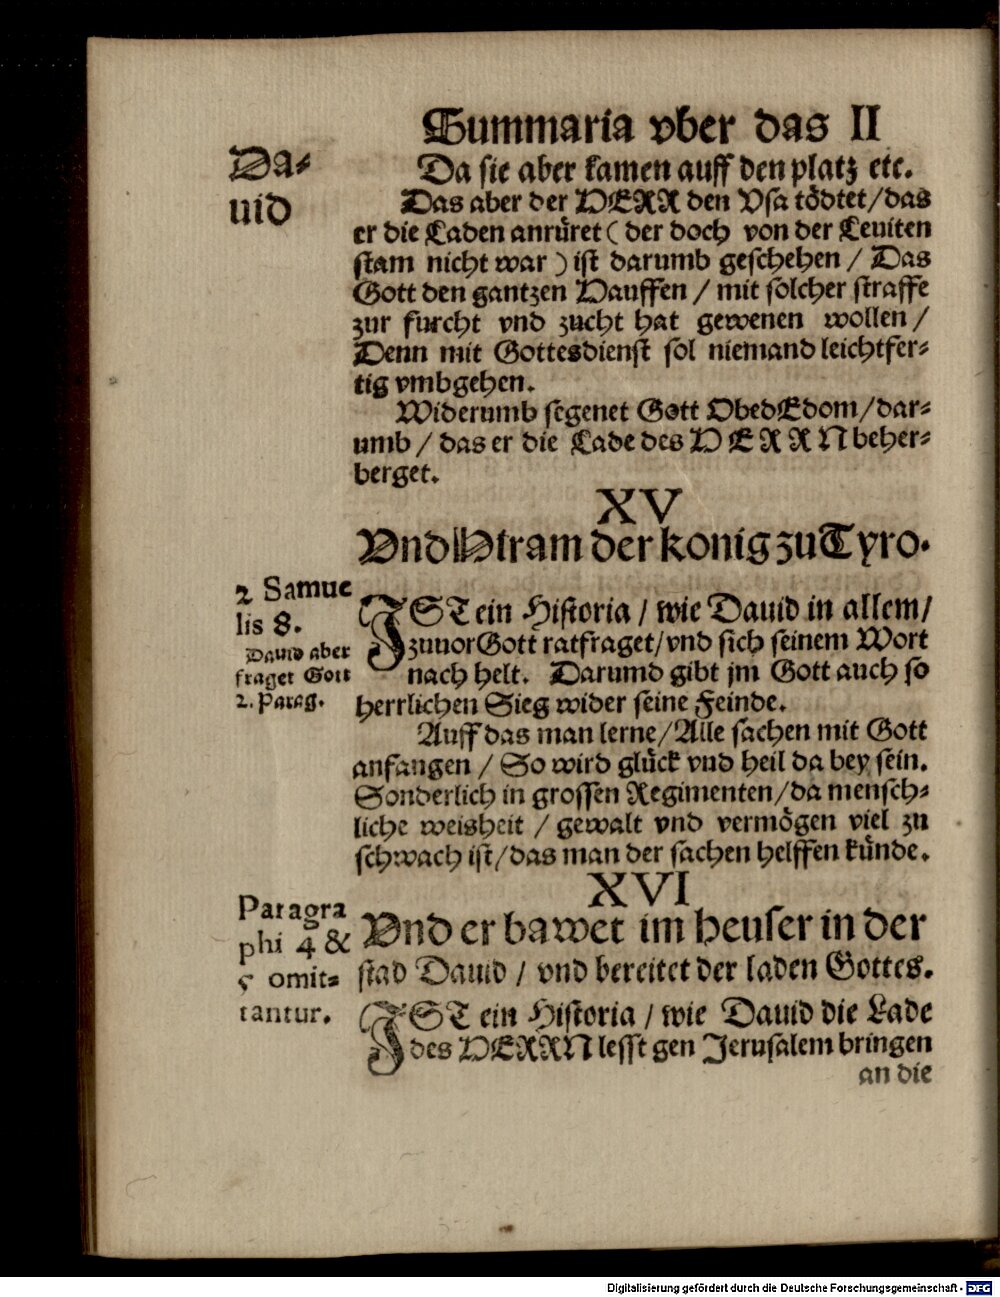 Summaria vber das II
Da⸗
uid
Da sie aber kamen auff den platz etc.
Das aber der HERR den Vsa tödtet/das
er die Laden anrüret ( der doch von der Leuiten
stam nicht war ) ist darumb geschehen / Das
Gott den gantzen Hauffen / mit solcher straffe
zur furcht vnd zucht hat gewenen wollen /
Denn mit Gottesdienst sol niemand leichtfer⸗
tig vmbgehen.
Widerumb segenet Gott ObedEdom/dar⸗
umb / das er die Lade des HERRN beher⸗
berget.
XV
Vnd Hiram der konig zu Tyro.
2 Samue
lis 8.
Dauid aber
fraget Gott
2. Parag.
IST ein Historia / wie Dauid in allem/
zuuor Gott ratfraget/vnd sich seinem Wort
nach helt. Darumd gibt jm Gott auch so
herrlichen Sieg wider seine Feinde.
Auff das man lerne/Alle sachen mit Gott
anfangen / So wird glück vnd heil da bey sein.
Sonderlich in grossen Regimenten/da mensch⸗
liche weisheit / gewalt vnd vermögen viel zu
schwach ist/das man der sachen helffen künde.
XVI
Paragra
phi 4 &
5 omit⸗
tantur.
Vnd er bawet im heuser in der
stad Dauid / vnd bereitet der laden Gottes.
IST ein Historia / wie Dauid die Lade
des HERRN lesst gen Jerusalem bringen
an die
Digitalisierung gefördert durch die Deutsche Forschungsgemeinschaft - DFG